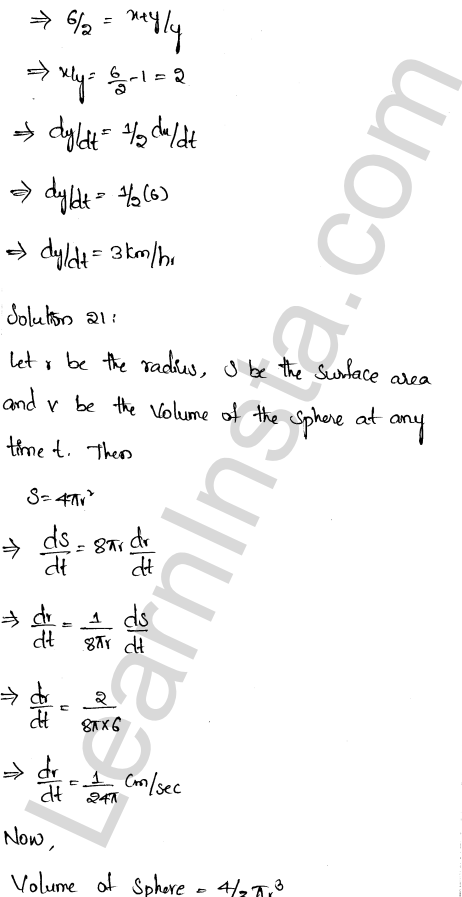 ⇒ 6/2 = x+y/y
⇒ x/y = 6/2 - 1 = 2
⇒ dy/dt = 1/2 dx/dt
⇒ dy/dt = 1/2 (6)
⇒ dy/dt = 3 km/hr
Solution 21:
Let r be the radius, S be the surface area
and v be the Volume of the sphere at any
time t. Then
S = 4πr²
⇒ ds/dt = 8πr dr/dt
⇒ dr/dt = 1/8πr ds/dt
⇒ dr/dt = 2/8π×6
⇒ dr/dt = 1/24π cm/sec
Now,
Volume of Sphere = 4/3 πr³
LearnInsta.com